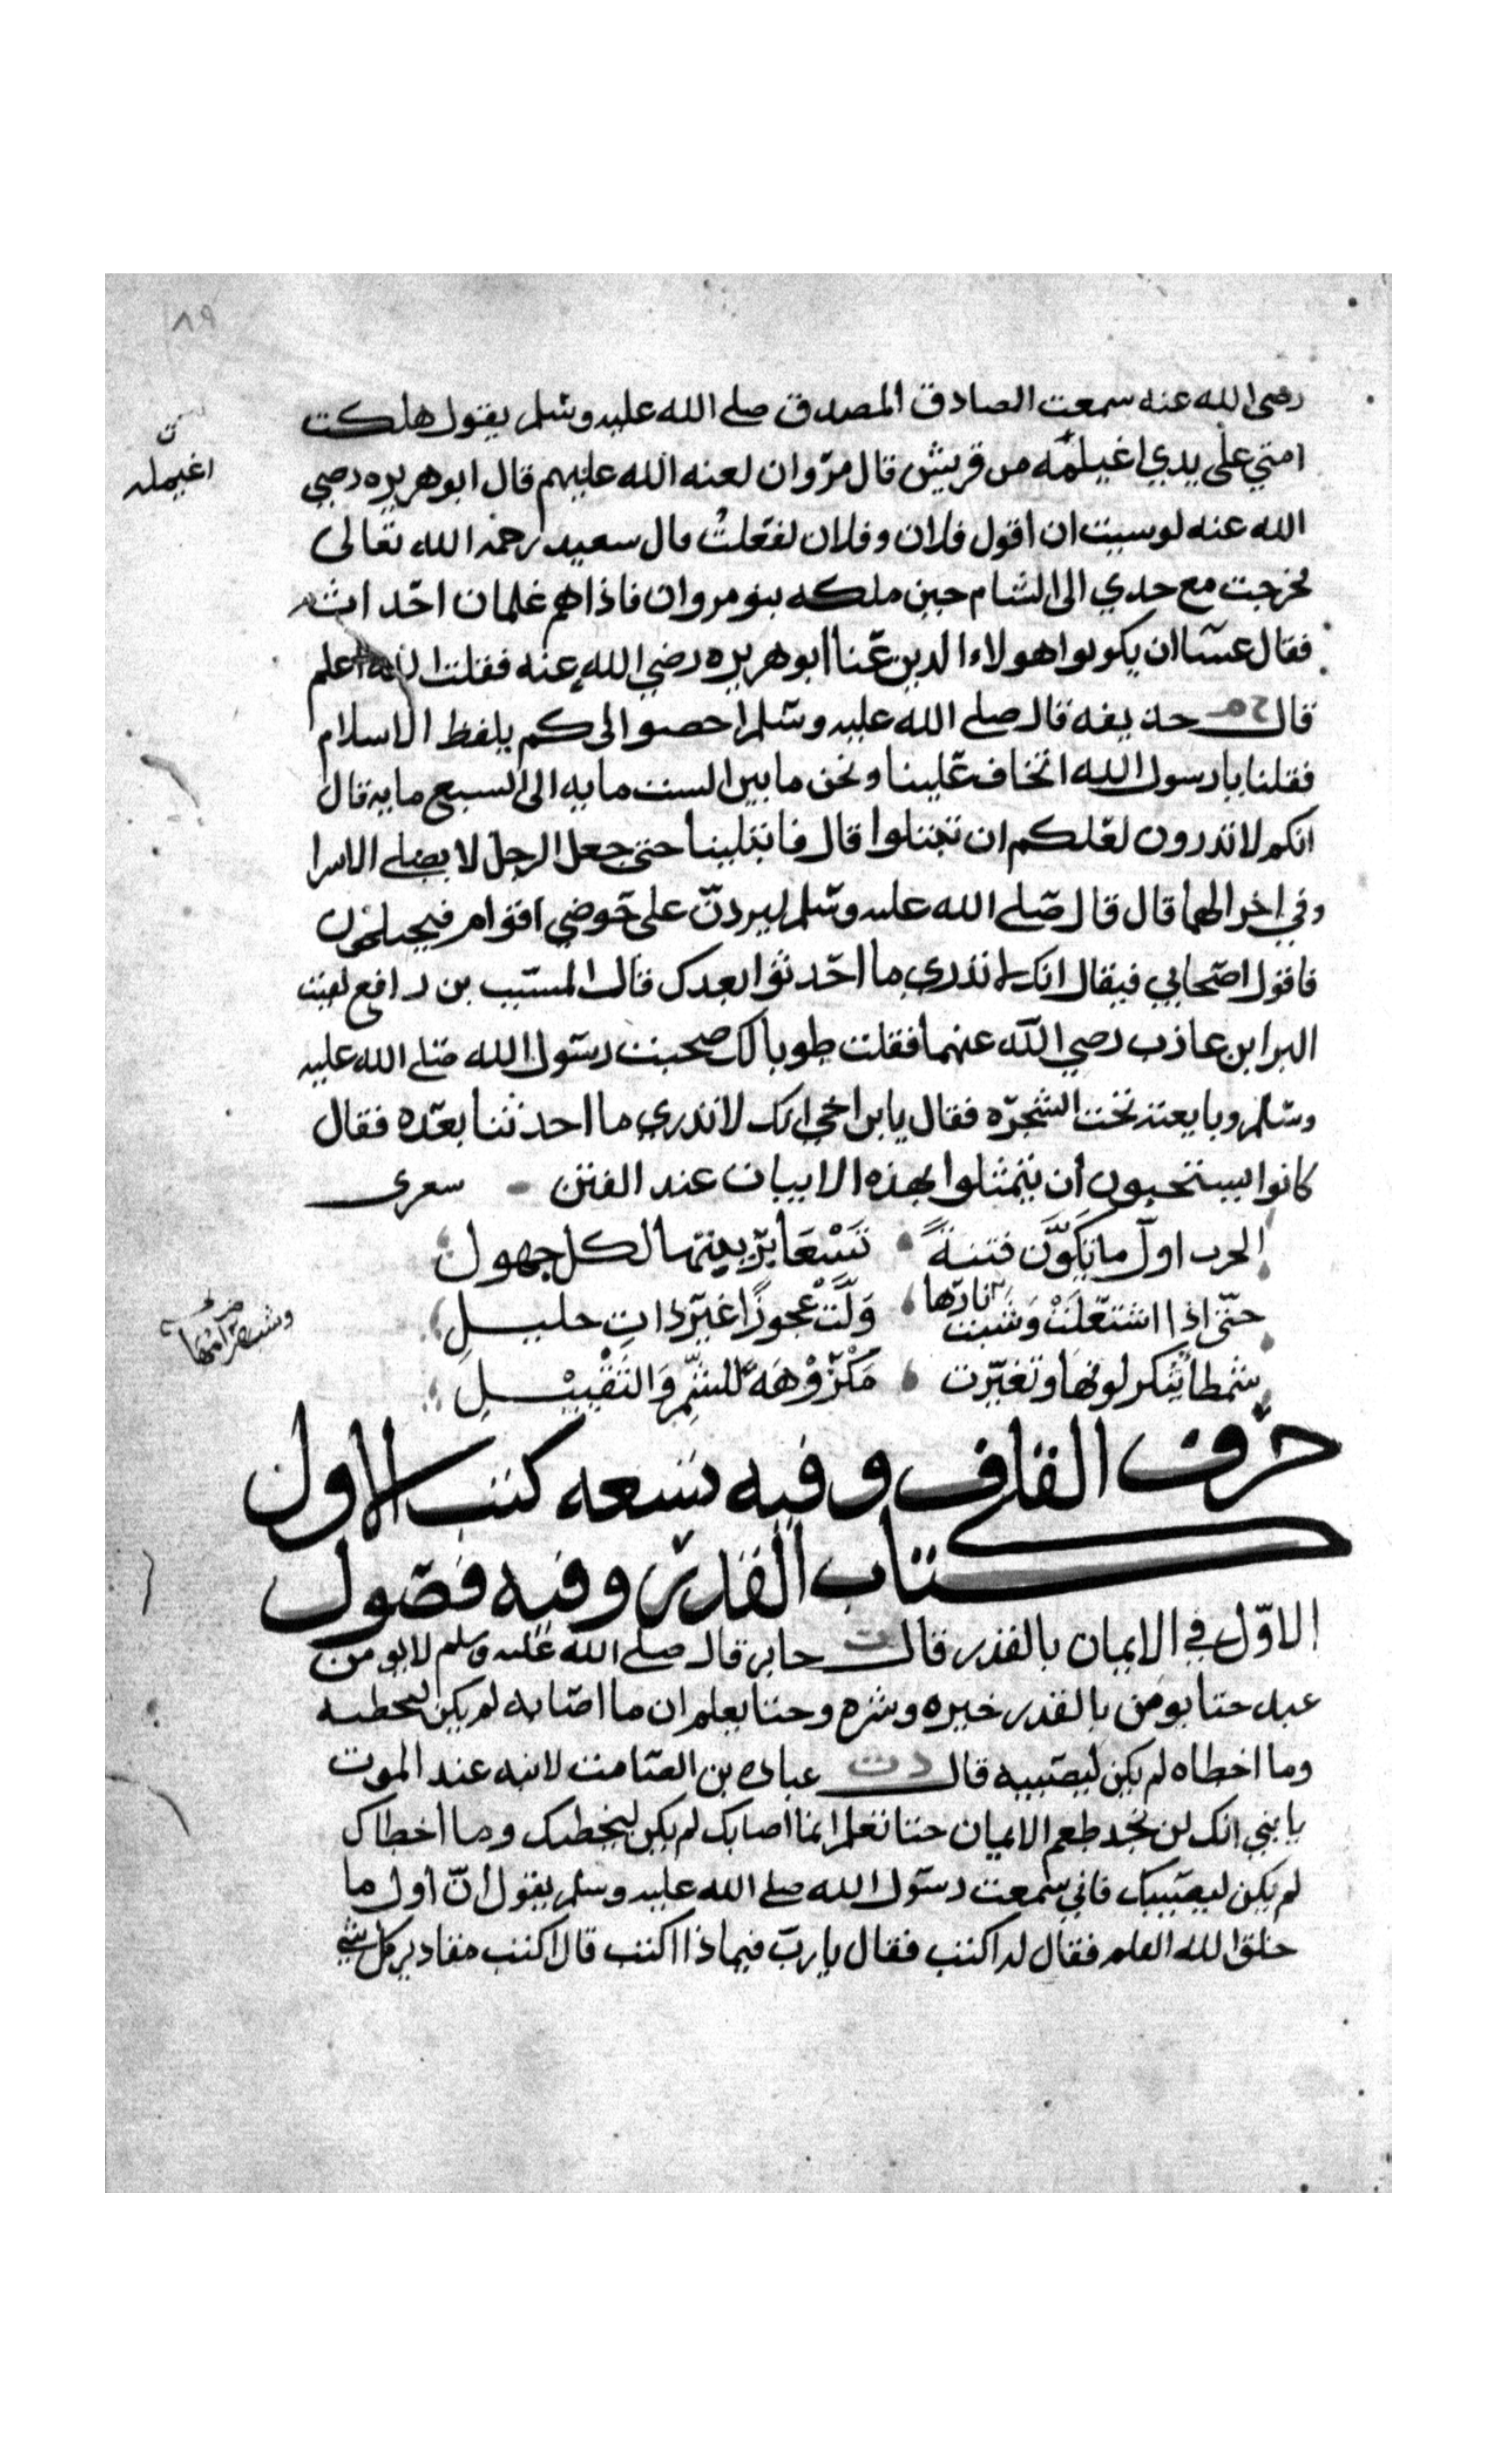 ٨٩
رضي الله عنه سمعت الصادق المصدوق صلى الله عليه وسلم يقول هلكت
امتي على يدي اغيلمه من قريش قال مروان لعنه الله عليهم قال ابوهريره رضي
اغيمله
الله عنه لو سيت ان اقول فلان وفلان لفعلت قال سعيد رحمه الله تعالى
فخرجت مع جدي الى الشام حين ملكه بنو مروان فاذاهم غلمان احداث
فقال عسا ان يكونوا هولاء الدين عنا ابوهريره رضي الله عنه فقلت الله اعلم
قال خ م حذيفه قال صلى الله عليه وسلم احصوا الى كم يلفظ الاسلام
فقلنا يا رسول الله اتخاف علينا ونحن ما بين الست مايه الى السبع مايه قال
انكم لا تدرون لعلكم ان تبتلوا قال فابتلينا حتى جعل الرجل لا يصلي الا سرا
وفي اخر لهما قال قال صلى الله عليه وسلم ليردن على حوضي اقوام فيختلجون
فاقول اصحابي فيقال انك لا تدري ما احدثوا بعدك قال المسيب بن رافع لقيت
البرا بن عازب رضي الله عنهما فقلت طوبا لك صحبت رسول الله صلى الله عليه
وسلم وبايعته تحت الشجره فقال يا بن اخي انك لا تدري ما احدثنا بعده فقال
كانوا يستحبون ان يتمثلوا بهذه الابيات عند الفتن سعرى
الحرب اول ما تكون فتنة تسعا بزينتها لكل جهول
حتى اذا اشتعلت وشبت نارها ولت عجوزا غير ذات حليل
وشب ضرامها
شمطا ينكر لونها وتغيرت مكروهة للشم والتقبيل
حرف القاف وفيه تسعه كتب الاول
كتاب القدر وفيه فصول
الاول في الايمان بالقدر قال ت جابر قال صلى الله عليه وسلم لا يومن
عبد حتا يومن بالقدر خيره وشره وحتا يعلم ان ما اصابه لم يكن ليخطيه
وما اخطاه لم يكن ليصيبه قال د ت عباده بن الصامت لابنه عند الموت
يا بني انك لن تجد طعم الايمان حتا تعلم انما اصابك لم يكن ليخطيك وما اخطاك
لم يكن ليصيبك فاني سمعت رسول الله صلى الله عليه وسلم يقول ان اول ما
خلق الله القلم فقال له اكتب فقال يا رب فيما ذا اكتب قال اكتب مقادير كل شي